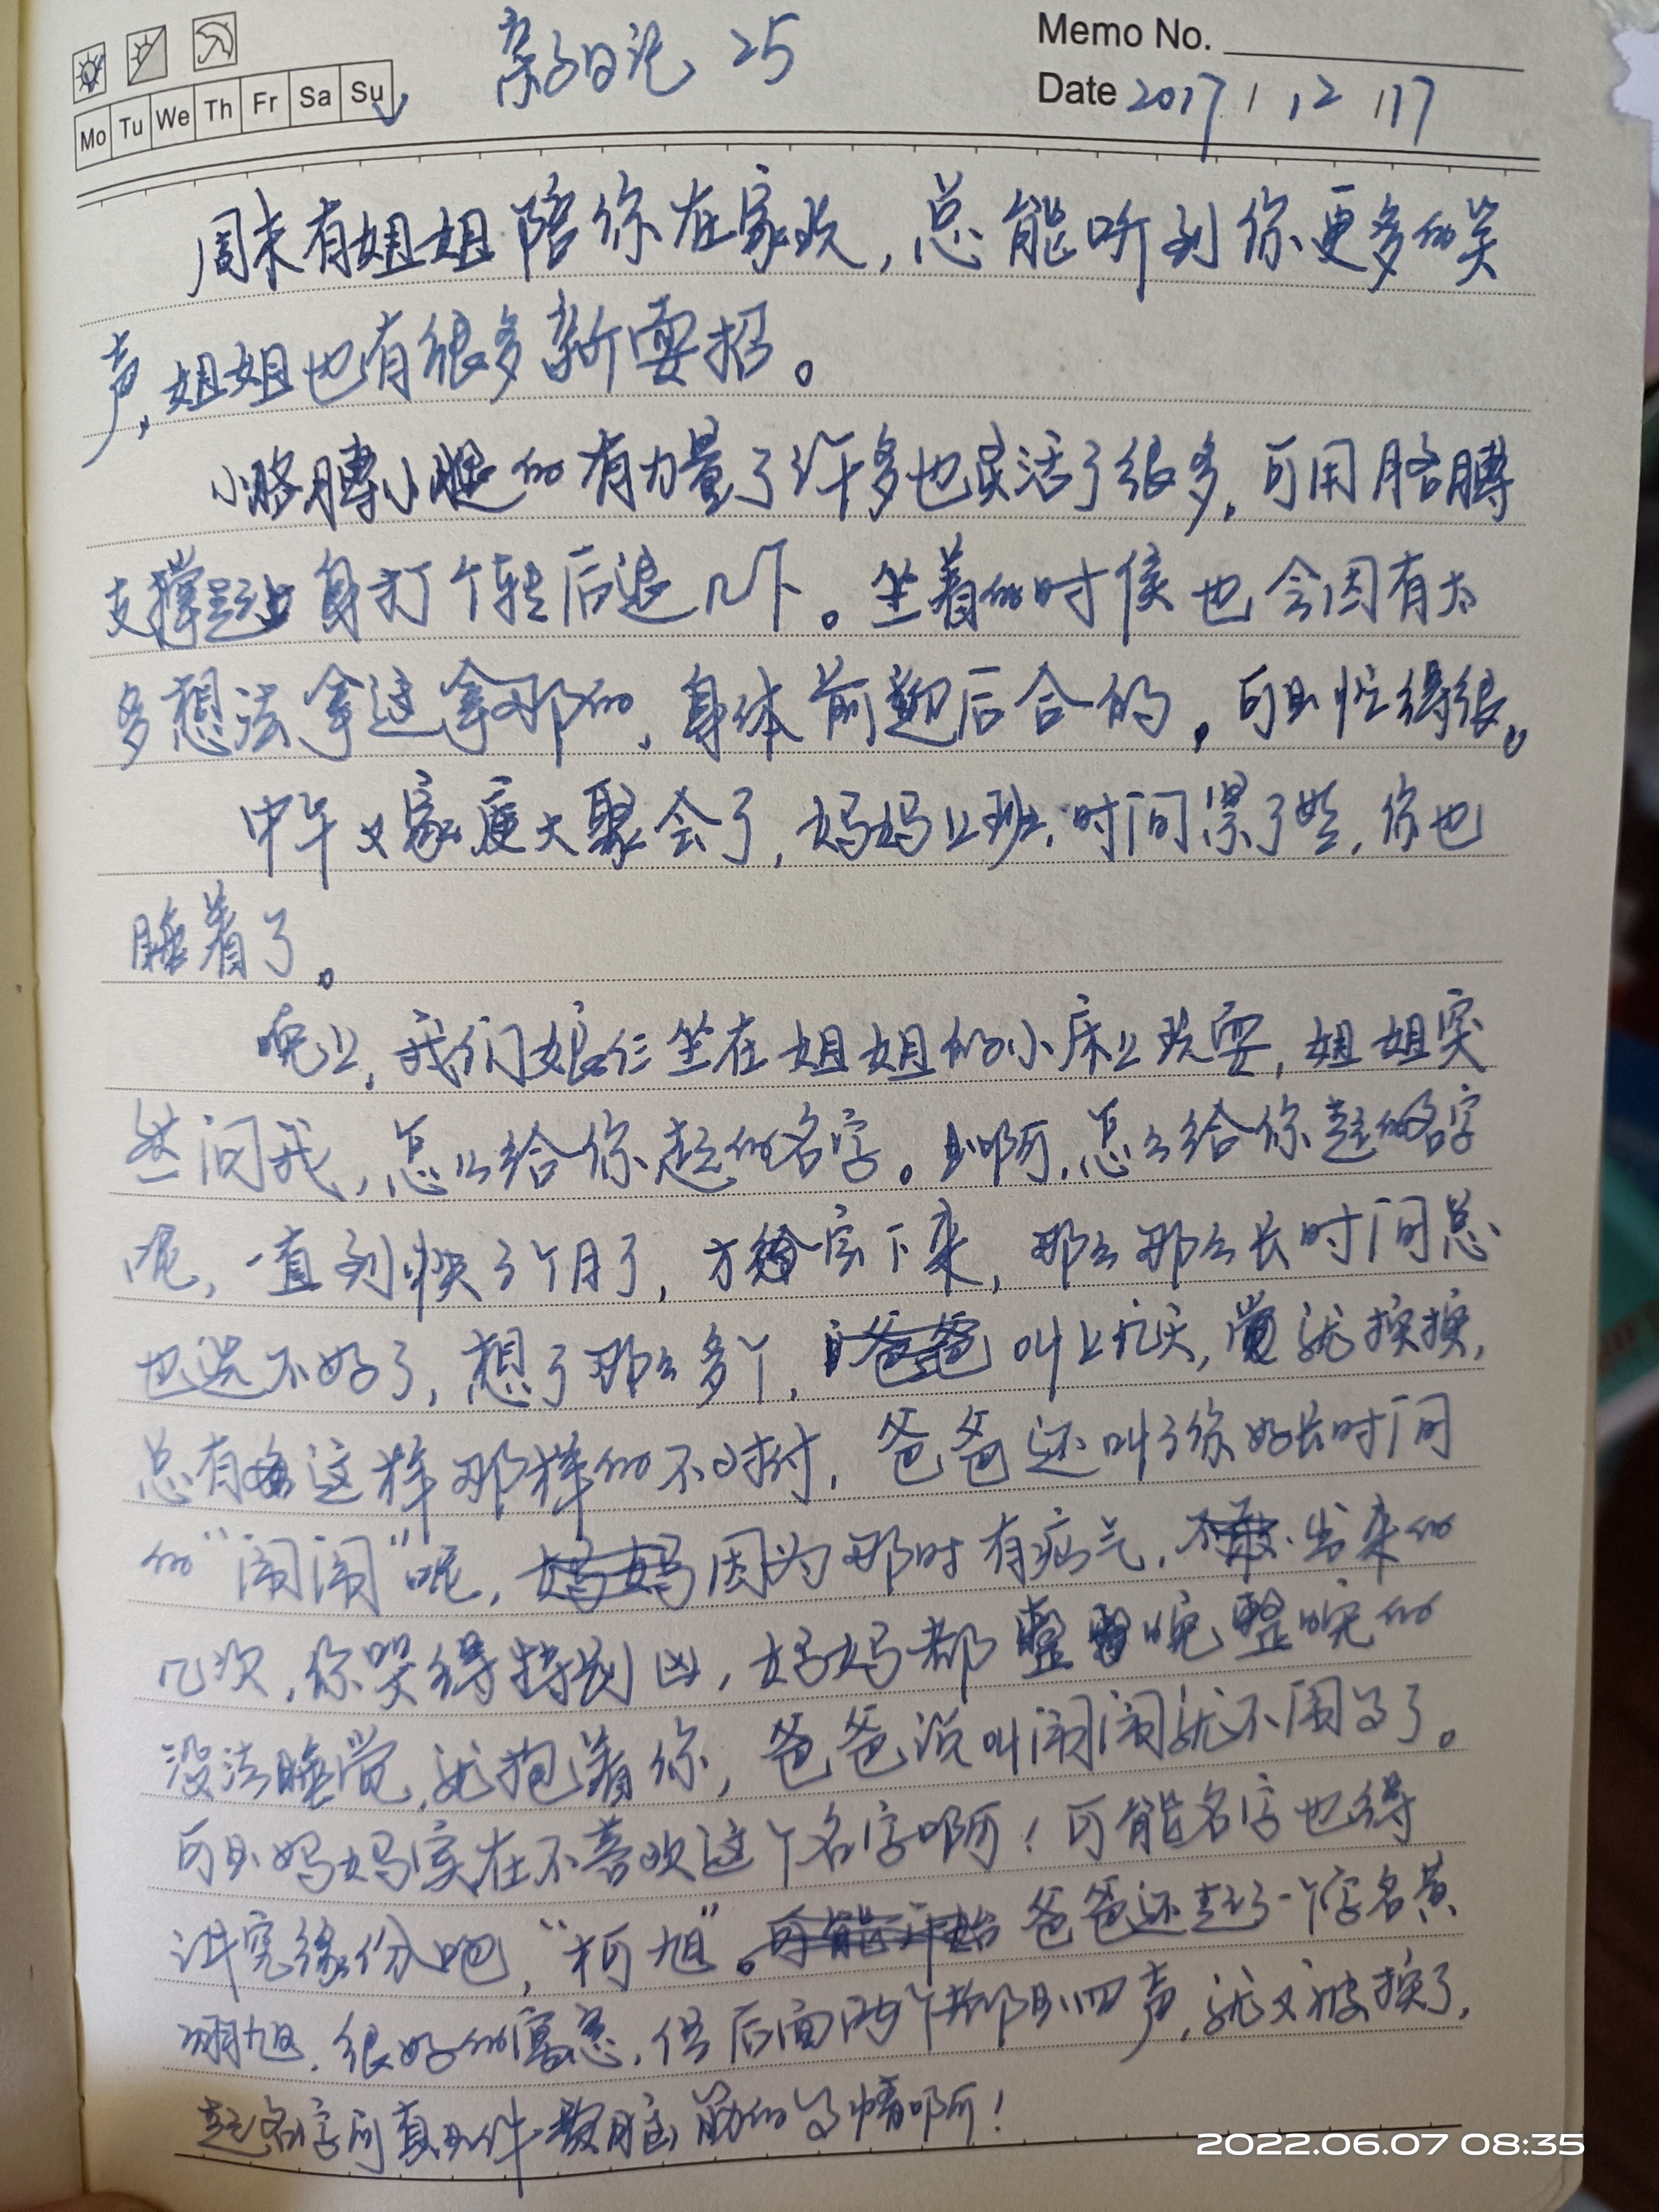 亲子日记 25
Memo No.
Date 2017 / 12 / 17
Mo Tu We Th Fr Sa Su
周末有姐姐陪你在家玩，总能听到你更多的笑
声，姐姐也有很多新耍招。
小胳膊小腿的有力量了许多也灵活了很多，可用胳膊
支撑起身打个转后退几下。坐着的时候也会因有太
多想法拿这拿那的，身体前趄后合的，可是忙得很。
中午又家庭大聚会了，妈妈上班，时间累了些，你也
睡着了。
晚上，我们娘仨坐在姐姐的小床上玩耍，姐姐突
然问我，怎么给你起的名字。是啊，怎么给你起的名字
呢，一直到快3个月了，才定下来，那么那么长时间总
也选不好了，想了那么多个，叫上几天，就换换，
总有这样那样的不对付，爸爸还叫了你好长时间
的“闹闹”呢，因为那时有疝气，出来的
几次，你哭得特别凶，妈妈都整晚整晚的
没法睡觉，就抱着你，爸爸说叫闹闹就不闹了。
可是妈妈实在不喜欢这个名字啊！可能名字也得
讲究缘份吧，“柯旭”。爸爸还起了一个字名黄
翊旭，很好的寓意，但后面两个都是四声，就又被换了，
起名字可真是件费脑筋的事情啊！
2022.06.07 08:35